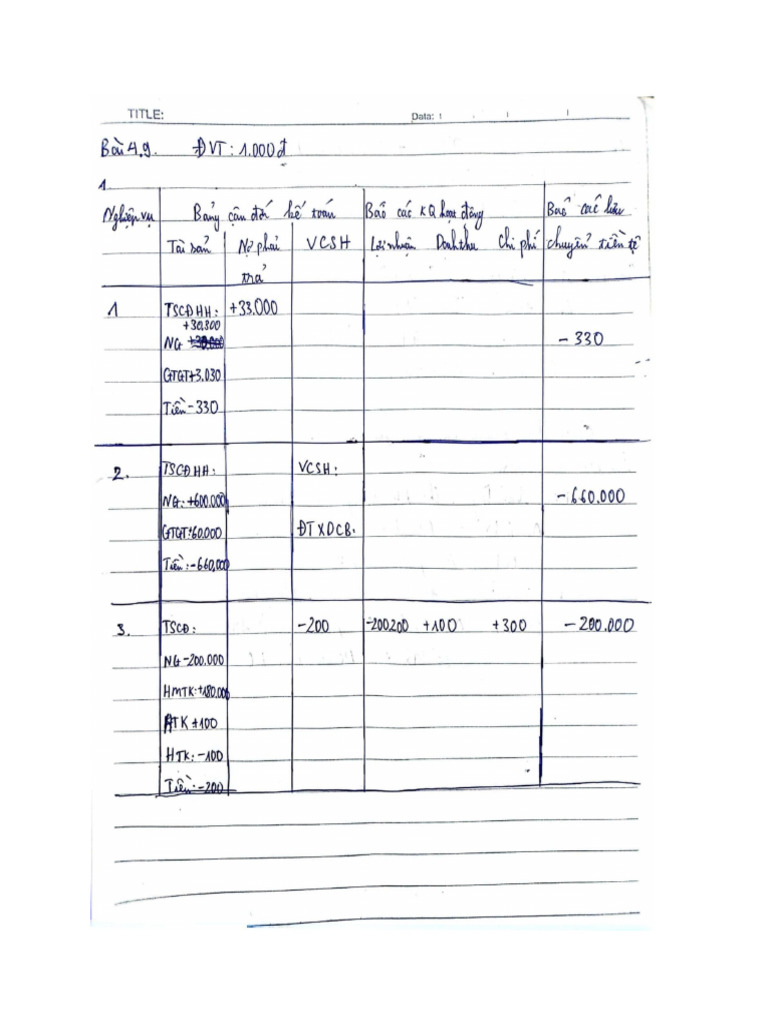 TITLE: Data:
Bài 4.9. ĐVT: 1.000đ
1
Nghiệp vụ Bảng cân đối kế toán Báo các KQ hoạt động Báo các lưu
Tài sản Nợ phải VCSH Lợi nhuận Doanh thu Chi phí chuyển tiền tệ
trả
1 TSCĐHH: +33.000
+30.300
NG - 330
GTGT+3.030
Tiền -330
2. TSCĐHH: VCSH:
NG: +600.000 -660.000
GTGT:60.000 ĐTXDCB.
Tiền: -660.000
3. TSCĐ: -200 -200.200 +100 +300 -200.000
NG -200.000
HMTK:+180.000
TK +100
HTK: -100
Tiền: -200